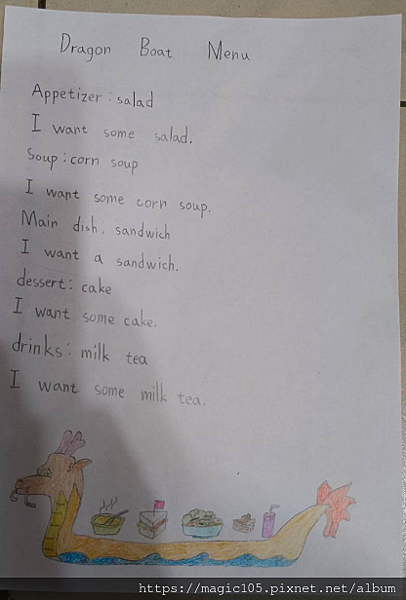 Dragon Boat Menu
Appetizer: salad
I want some salad.
Soup: corn soup
I want some corn soup.
Main dish: sandwich
I want a sandwich.
dessert: cake
I want some cake.
drinks: milk tea
I want some milk tea.
https://magic105.pixnet.net/album